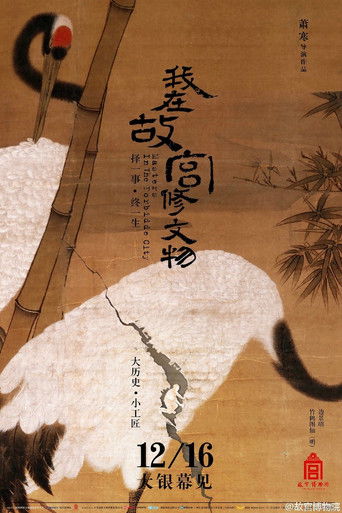 萧寒导演作品
我在故宫修文物
择一事·终一生
In The Forbidden City
大历史·小工匠
边景昭
竹鹤图轴（明）
12/16
大银幕见
故宫博物院
@故宫博物院